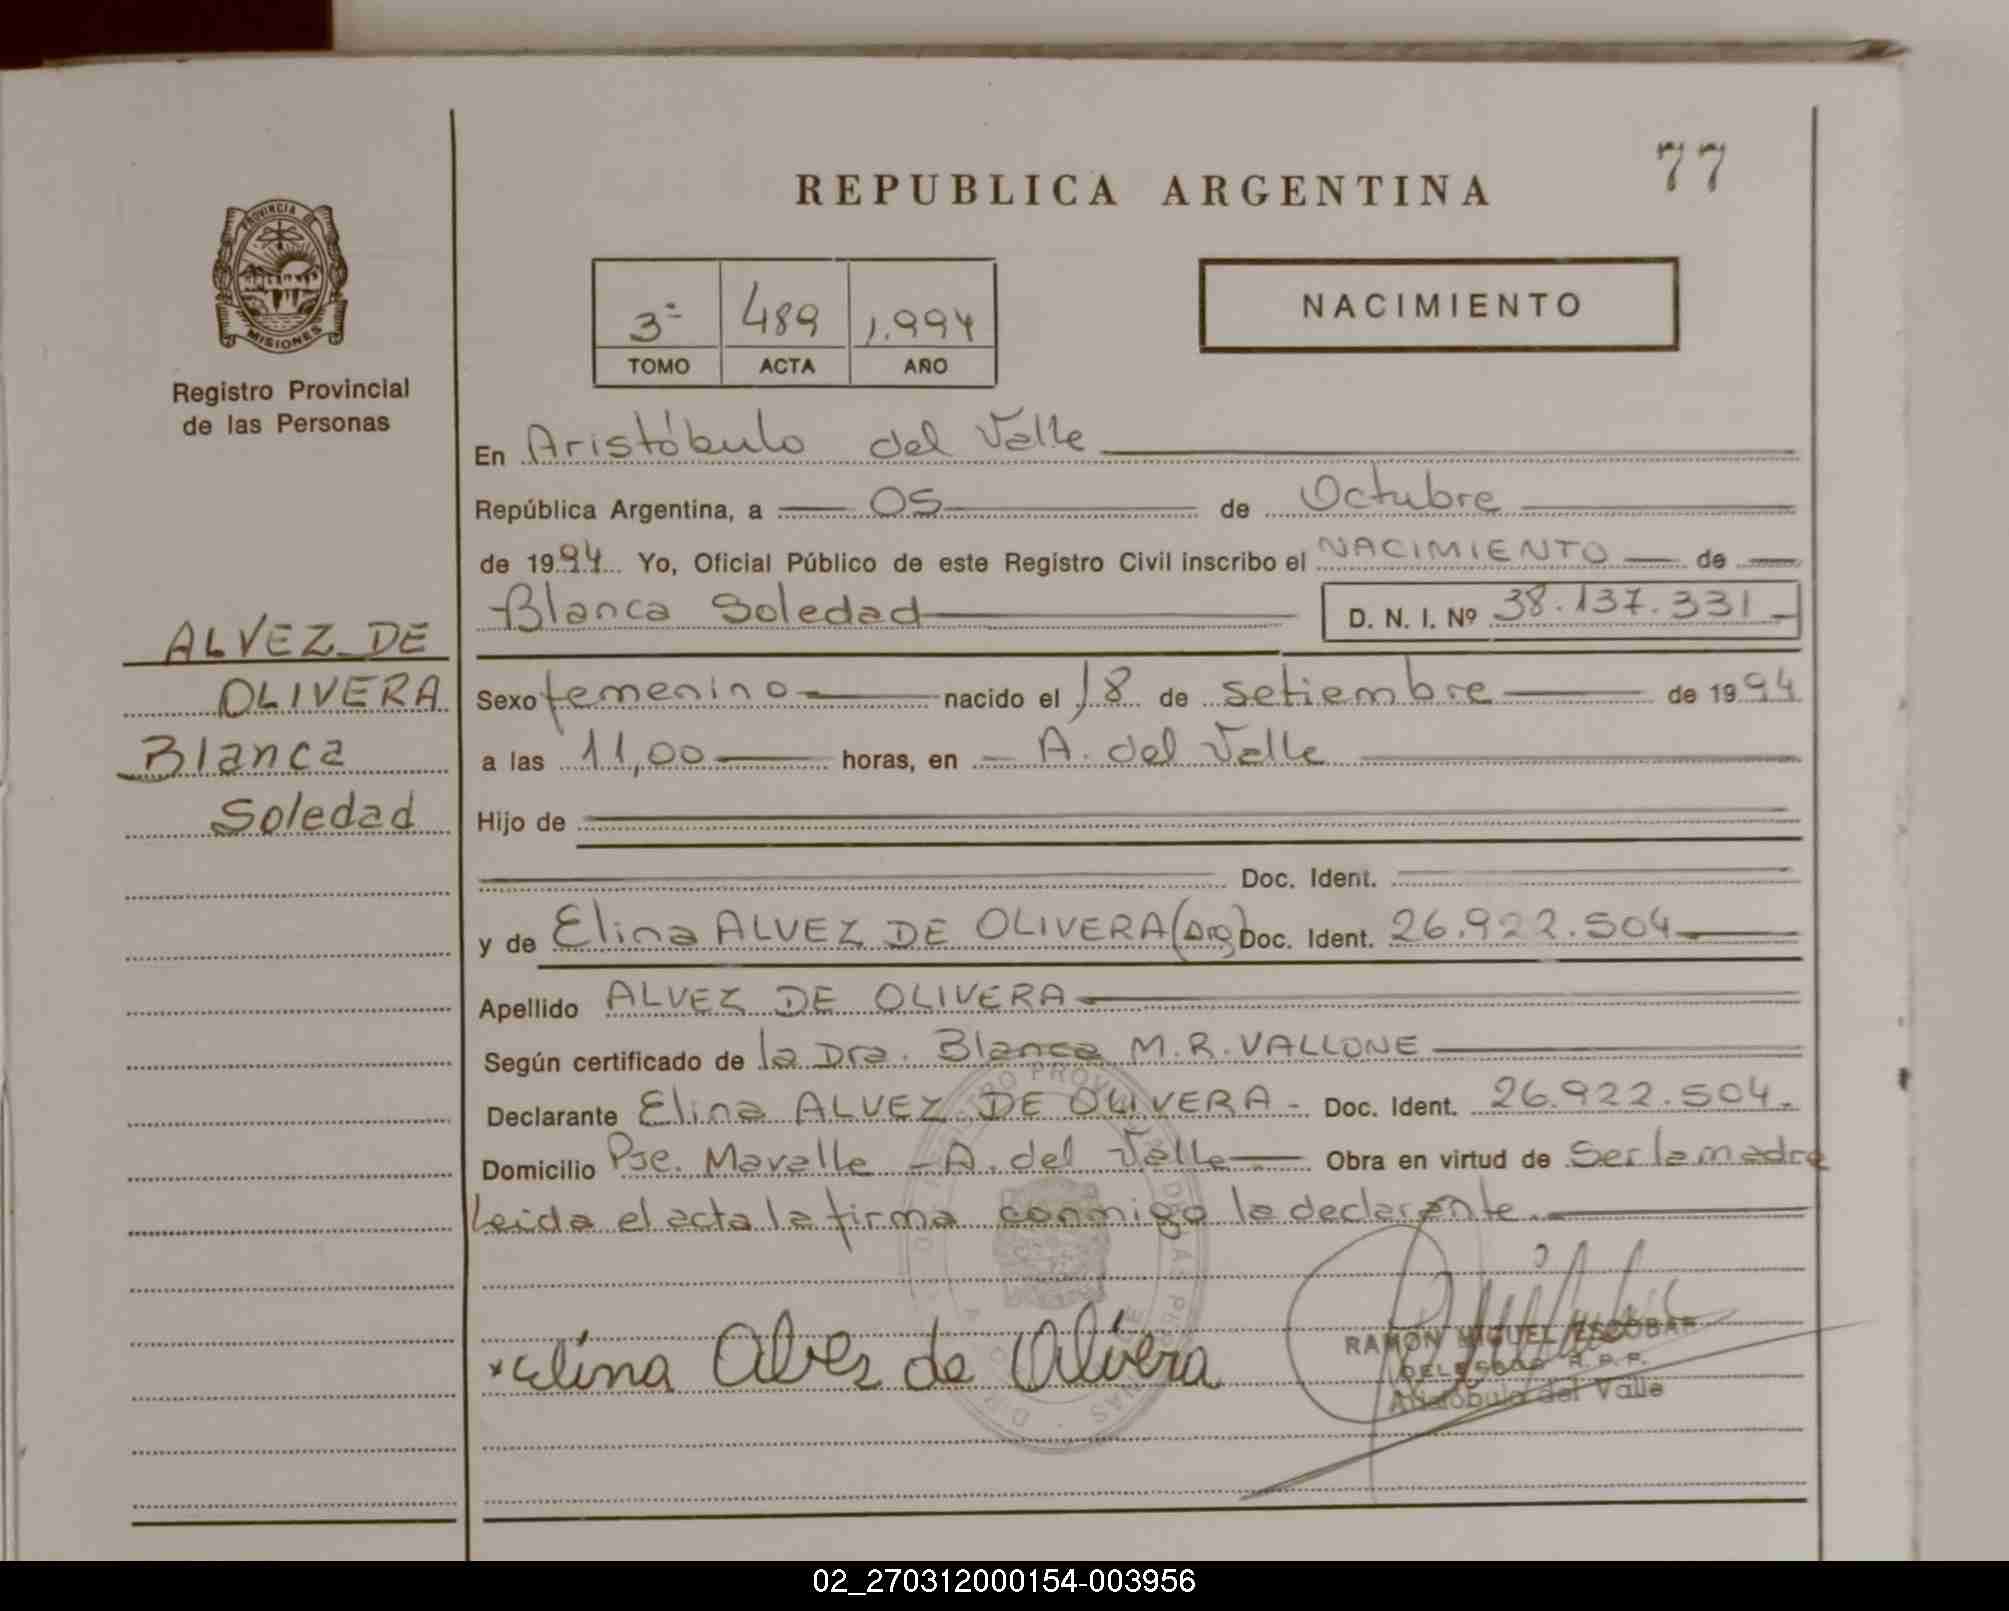 77
REPUBLICA ARGENTINA
PROVINCIA DE
MISIONES
Registro Provincial
de las Personas
3º 489 1.994
TOMO ACTA AÑO
NACIMIENTO
En Aristóbulo del Valle
República Argentina, a 05 de Octubre
de 1994 Yo, Oficial Público de este Registro Civil inscribo el NACIMIENTO de
Blanca Soledad D. N. I. Nº 38.137.331
ALVEZ DE
OLIVERA
Blanca
Soledad
Sexo femenino nacido el 18 de setiembre de 1994
a las 11,00 horas, en A. del Valle
Hijo de
Doc. Ident.
y de Elina ALVEZ DE OLIVERA (Arg) Doc. Ident. 26.922.504
Apellido ALVEZ DE OLIVERA
Según certificado de la Dra. Blanca M.R. VALLONE
Declarante Elina ALVEZ DE OLIVERA - Doc. Ident. 26.922.504.
Domicilio Pje. Mavalle - A. del Valle Obra en virtud de Ser la madre
Leida el acta la firma conmigo la declarante.
x Elina Alves de Olivera
RAMON MIGUEL ESCOBAR
DELEGADO R. P. P.
Aristóbulo del Valle
02_270312000154-003956